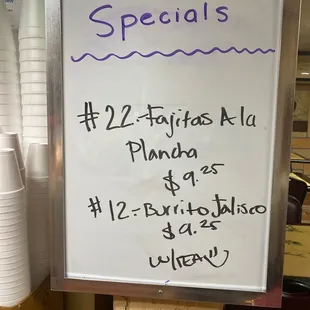 Specials
#22.-Fajitas A la
Plancha
$9.25
#12-Burrito Jalisco
$9.25
W/TEA